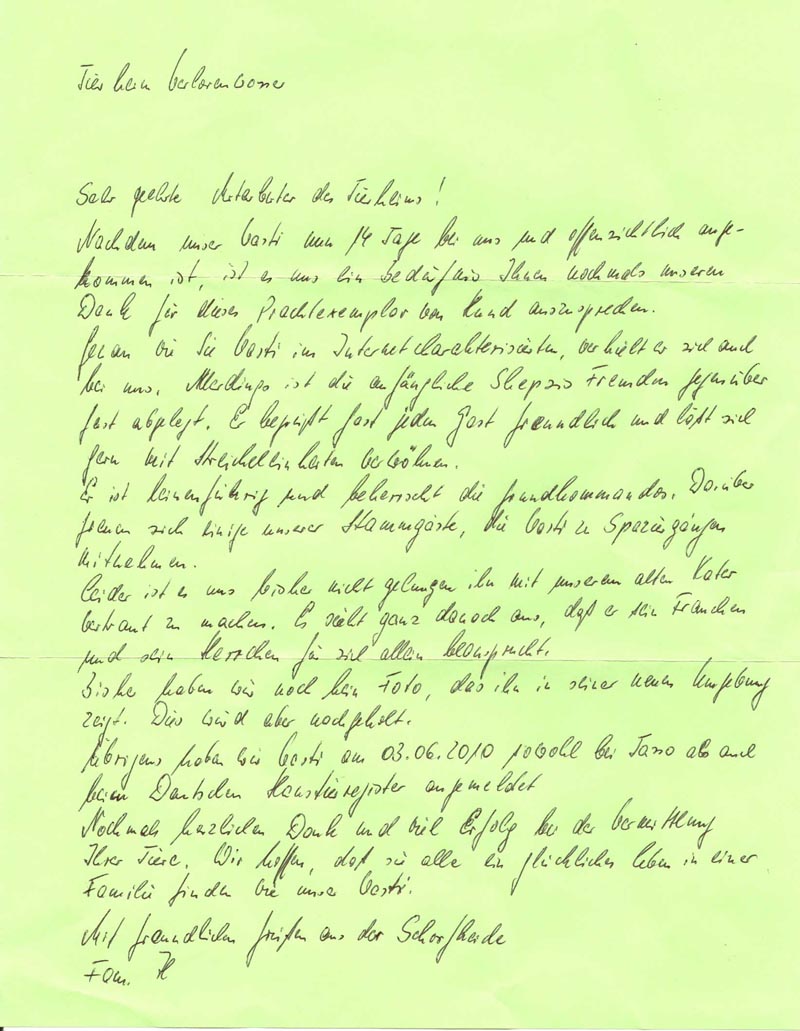 Tierheim Verlorenwasser
Sehr geehrte Mitarbeiter des Tierheims!
Nachdem unser Basti nun 14 Tage bei uns und offensichtlich ange-
kommen ist, ist es uns ein Bedürfnis Ihnen nochmals unseren
Dank für dieses Prachtexemplar von Hund auszusprechen.
Genau wie Sie Basti im Internet charakterisierten, verhielt er sich auch
bei uns. Allerdings ist die anfängliche Skepsis Fremden gegenüber
fast abgelegt. Er begrüßt fast jeden Gast freundlich und läßt sich
gern mit Streicheleinheiten verwöhnen.
Er ist leinenführig und beherrscht die Grundkommandos. Darüber
freuen sich einige unserer Stammgäste, die Basti zu Spaziergängen
mitnehmen.
Leider ist es uns bisher nicht gelungen ihn mit unserem alten Kater
vertraut zu machen. Es sieht ganz danach aus, daß er sein Frauchen
und sein Herrchen für sich allein beansprucht.
Bisher haben wir noch kein Foto, das ihn in seiner neuen Umgebung
zeigt. Dies wird aber nachgeholt.
Übrigens haben wir Basti am 03.06.2010 sowohl bei Tasso als auch
beim Deutschen Haustierregister angemeldet
Nochmals herzlichen Dank und viel Erfolg bei der Vermittlung
Ihrer Tiere. Wir hoffen, daß sie alle ein glückliches Leben in einer
Familie finden wie unser Basti.
Mit freundlichen Grüßen aus der Schorfheide
Fam. H